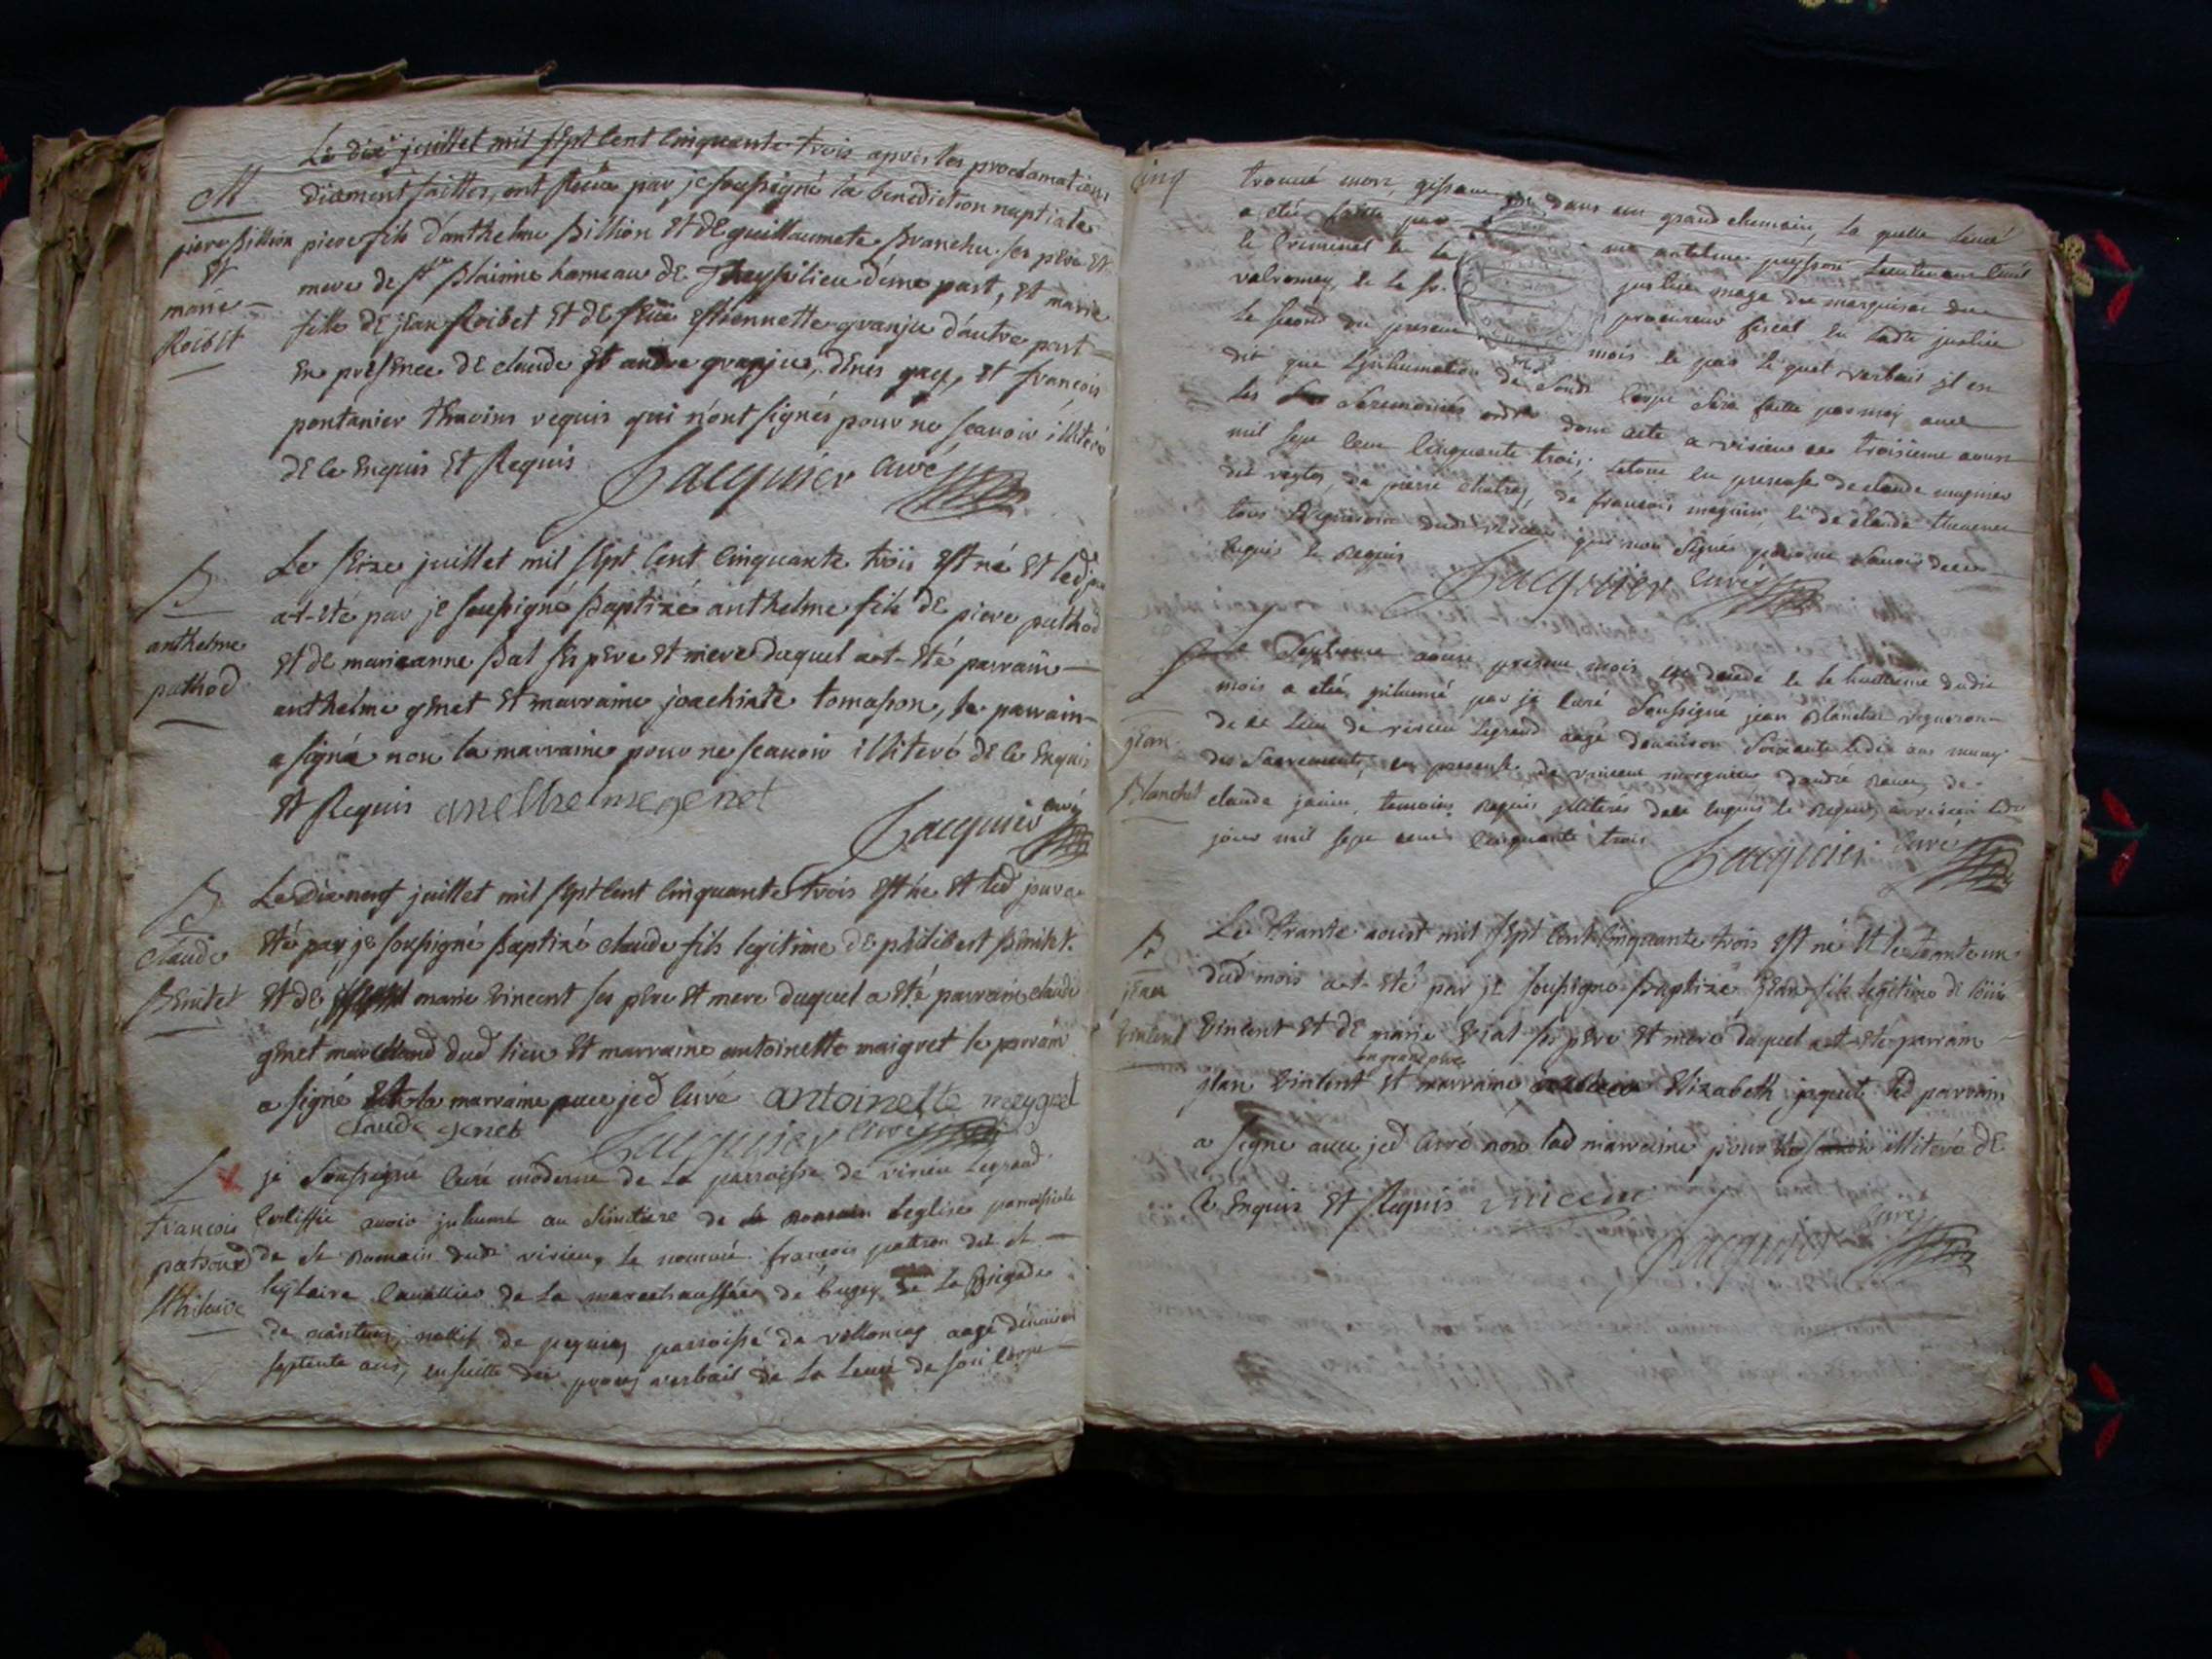 M
pierre Billion
Et
marie
Roibet
Le dix juillet mil sept cent cinquante trois apres les proclamations
düement faittes, ont Receu par je soussigné la benediction nuptiale
pierre fils d'anthelme Billion Et de guillaumete Branchu ses pere Et
mere de hameau de d'une part, Et marie
fille de jean Roibet Et de feüe Estiennette granju d'autre part
En presence de claude Et andre granju, denis gay, Et francois
pontanier thmoins requis qui n'ont signés pour ne scavoir illiteré
de ce Enquis Et Requis Jacquier curé
B
anthelme
pathod
Le seize juillet mil sept cent cinquante trois Est né Et led jour
a-t-eté par je soussigné Baptizé anthelme fils de piere pathod
Et de marieanne Bal ses pere Et mere duquel a-t-Eté parrain
anthelme genet Et marraine tomasson, le parrain
a signé non la marraine pour ne scavoir illiteré de ce Enquis
Et Requis anethelme genet
Jacquier curé
B
claude
Benitet
Le Dix neuf juillet mil sept cent cinquante trois Est né Et led jour a
Eté par je soussigné Baptizé claude fils legitime de philibert Benitet
Et de marie vincent ses pere Et mere duquel a Eté parrain claude
genet marchand dud lieu Et marraine antoinette maigret le parrain
a signé Et la marraine avec jed curé antoinette meygret
claude genet Jacquier curé
francois
patrond
St hilaire
je soussigné curé moderne de la parroisse de virieu legrand
certiffie avoir jnhumé au simitiere de leglise parroissiale
de St Romain dudt virieu, le nommé françois pattron dit St
hylaire cavallier de la marechaussée de bugey de la Brigade
de nantua, natif de parroisse de aagé d'environ
septente ans, ensuitte du proces verbail de la levée de son corps
cinq
trouvé mort, gissant dans un grand chemain, la quelle levée
a etée faitte par antelme peysson lieutenant civil
le criminel de la justice mage du marquisat du
valromey, le sr. procureur fiscal en ladte justice
le second du present mois le par le quel verbail jl en
dit que l'jnhumation de sondt corps sera faitte par moy avec
les ceremonies ordre dont acte a virieu ce troisieme aoust
mil sept cent cinquante trois; letout en presense de claude magnin
dit de pierre de francois magnin, et de claude
tous dudt virieu qui n'on signés pour ne savoir de ce
enquis et requis Jacquier curé
jean
Blanchet
Le septieme aoust present mois est decede et le huitieme dudit
mois a etée jnhummé par je curé soussigné jean Blanchet vigneron
de ce lieu de virieu legrand aagé d'environ soixante et dix ans muny
des sacrements, en presense de vincent d'andré de
claude janin temoins requis jlliterés de ce enquis et requis a virieu ledit
jour mil sept cent cinquante trois
Jacquier curé
B
jean
vincent
Le trante aoust mil sept cent cinquante trois Est né Et le trante un
dud mois a-t-Eté par je soussigné Baptizé jean fils legitime de loüis
vincent Et de marie vial ses pere Et mere duquel a-t-Eté parrain
jean vincent Et marraine Elizabeth jaquet led parrain
a signe avec jed curé non lad marraine pour illiteré de
ce Enquis Et Requis vincent
Jacquier curé